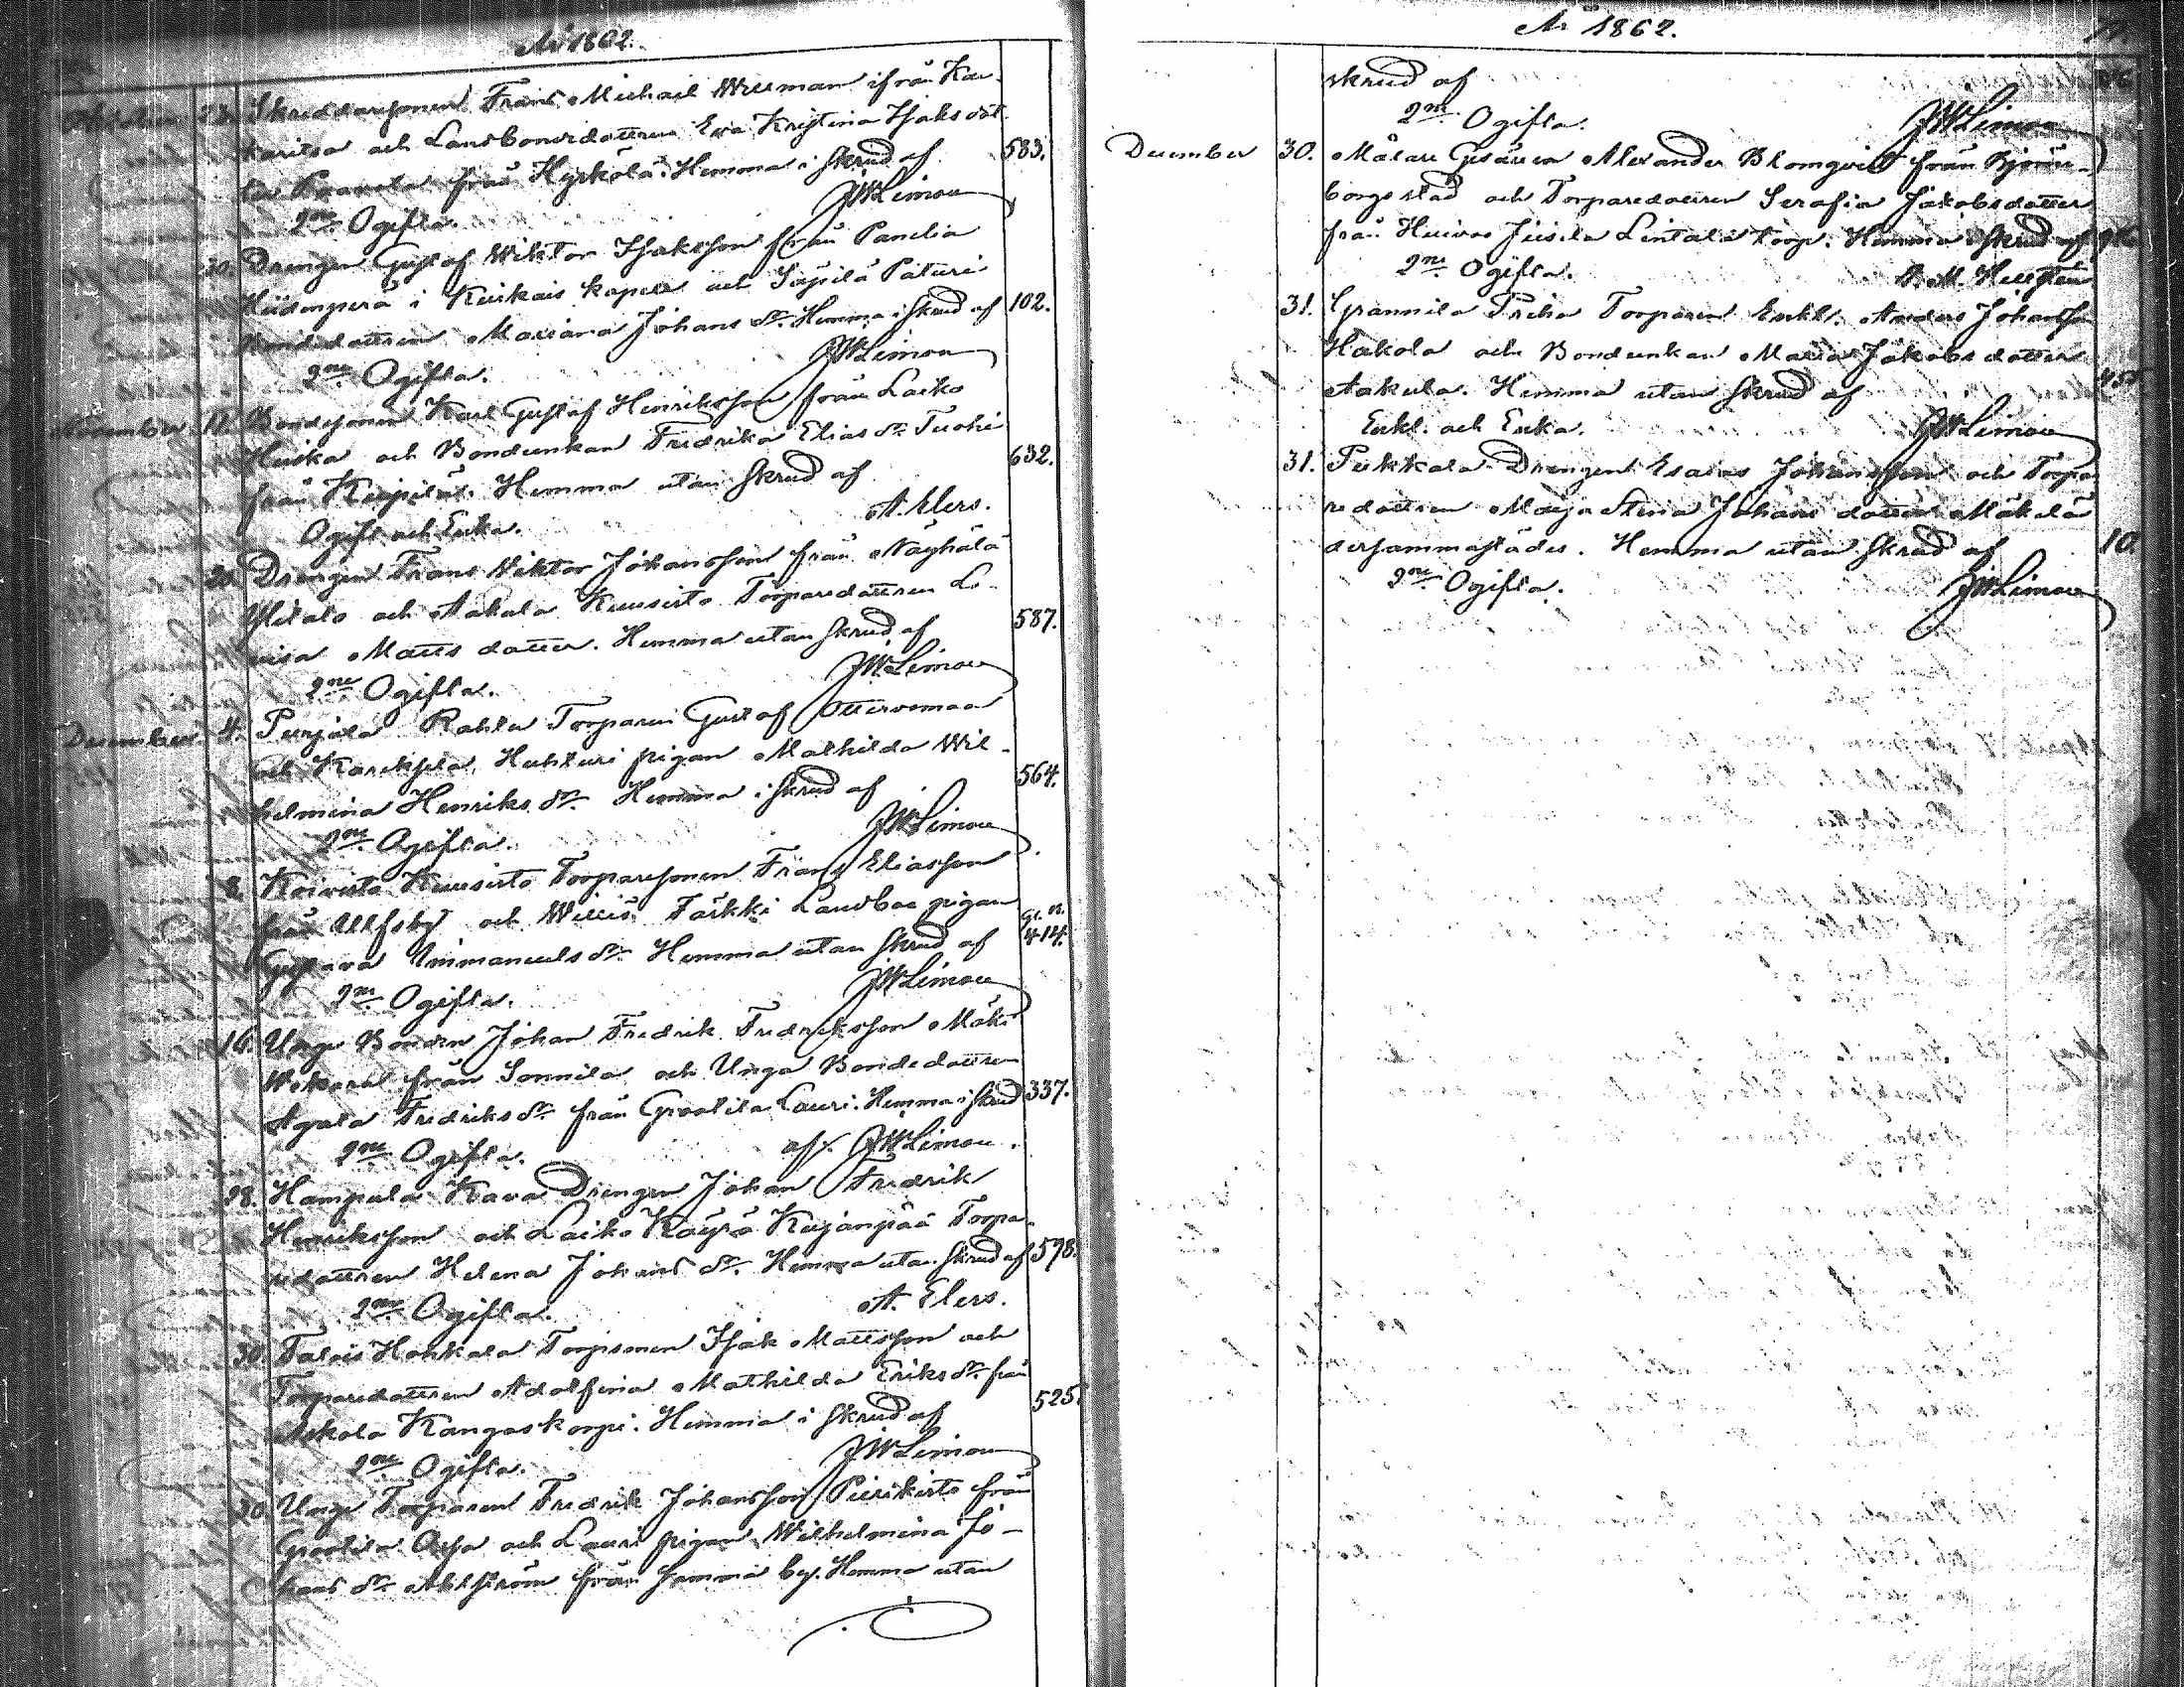 År 1862.
23. Skreddaresonen Frans Michail Wreeman ifrån Ka-
och Landbondedottren Eva Kristina Isaks
från Hyrkölä. Hemma i skrud af 583.
2ne Ogifta. JWLimon
30. Drengen Gustaf Wiktor Isaksson från Panelia
Hiidenperä i Kiukais kapell och Säpilä Paturi
bondedottren Mariana Johans dr. Hemma i skrud af 102.
2ne Ogifta. JWLimon
November Bondesonen Karl Gustaf Henriksson från Laiko
och Bondeenkan Fredrika Elias dr. Tuohi
från Keipilä. Hemma utan skrud af 632.
Ogift och Enka. A. Elers.
Drengen Frans Wiktor Johansson från Näyhälä
Ylitalo och Aakula Kuusisto Torparedottren Lo-
visa Matts dotter. Hemma utan skrud af 587.
2ne Ogifta. JWLimon
December 4. Purjala Rahla Torparen Gustaf
och Karekselä Huhturi pigan Mathilda Wil-
helmina Henriks dr. Hemma i skrud af 564.
2ne Ogifta. JWLimon
8. Koivisto Kuusisto Torparesonen Frans Eliasson
från Ulfsby och Willis Tärkki Landboe pigan
Gustava Immanuels dr. Hemma utan skrud af 414.
2ne Ogifta. JWLimon
16. Unge Bonden Johan Fredrik Fredriksson Mäki
från Sonnila och Unga Bondedottren
Agata Fredriks dr. från Groolila Lauri. Hemma i skrud 337.
2ne Ogifta. af/. JWLimon.
28. Hampula Kava Drengen Johan Fredrik
Henriksson och Laiko Käyrä Kujanpää Torpa-
redottren Helena Johans dr. Hemma utan skrud af 578.
2ne Ogifta. A. Elers.
30. Talois Hohkala Isak Mattsson och
Torparedottren Adolfina Mathilda Eriks dr. från
Askola Kangaskorpi. Hemma i skrud af 525.
2ne Ogifta. JWLimon
30. Unge Torparen Fredrik Johansson Piirikisto från
Groolila Oja och Lauri pigan Wilhelmina Jo-
hans dr. Ahlström från samma by. Hemma utan
År 1862.
skrud af
2ne Ogifta. JWLimon
December 30. Målare Gesällen Alexander Blomqvist från Björne-
borgs stad och Torparedottren Serafia Jakobsdotter
från Huivo Jüsila Lintala torp. Hemma i skrud af
2ne Ogifta. Hellsten
31. Grannila Preiha Torparen Enkl. Anders Johansson
Hakola och Bondeenkan Maria Jakobs dotter
Aakula. Hemma utan skrud af 455
Enkl. och Enka. JWLimon
31. Pukkala Drengen Esaias Johansson och Torpa-
redottren Maja Stina Johans dotter Mäkelä
dersammastädes. Hemma utan skrud af 10.
2ne Ogifta. JWLimon